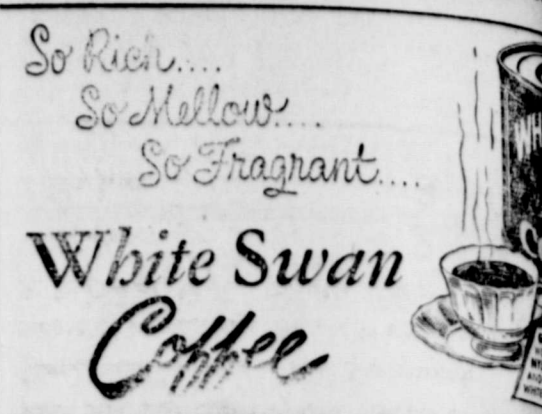 So Rich....
So Mellow....
So Fragrant....
White Swan
Coffee
WH